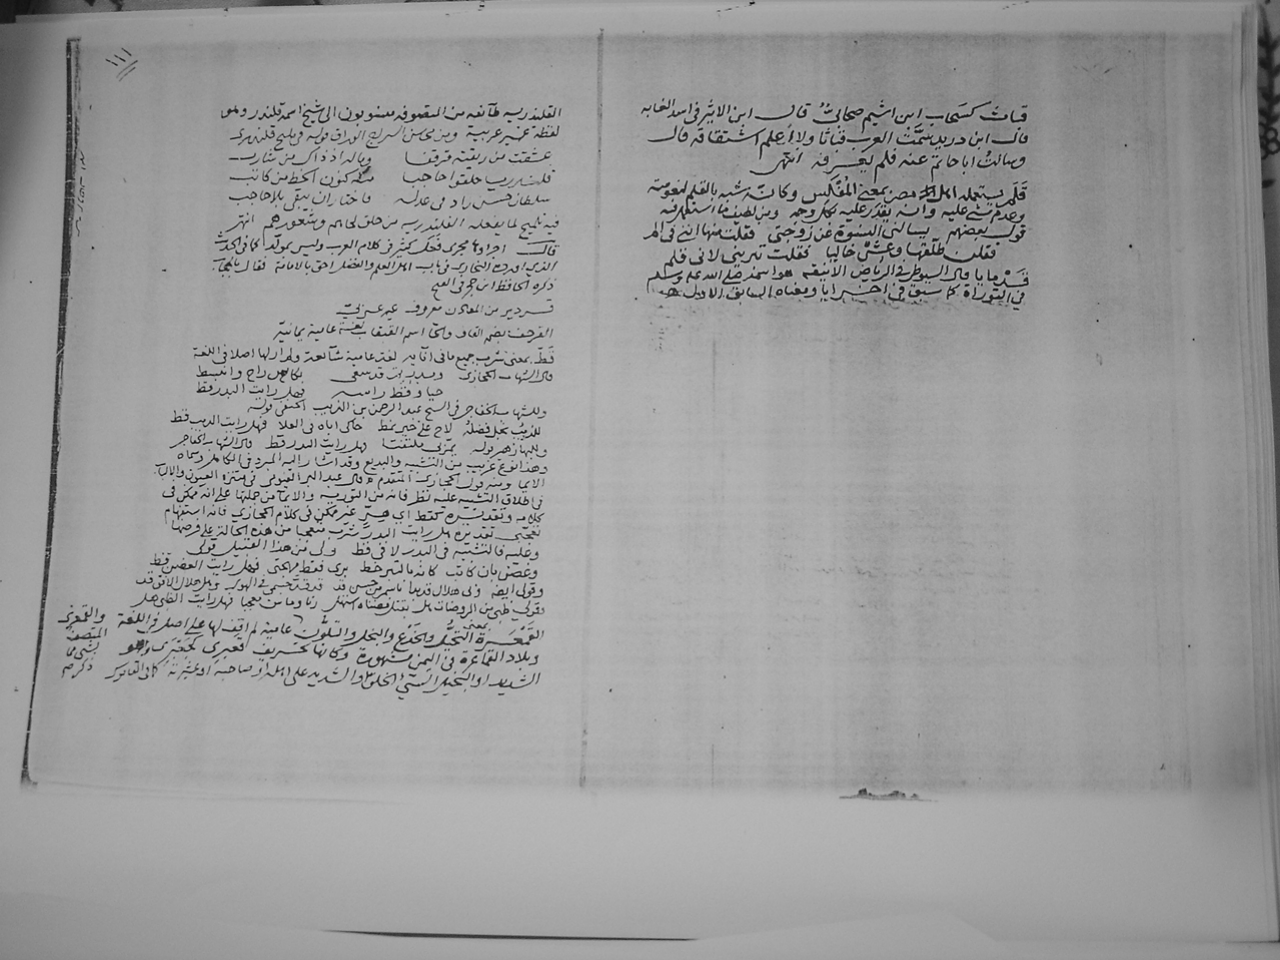 قباث كسحاب ابن اشيم صحابيٌّ قال ابن الاثير في اسد الغابه
قال ابن دريد سمّت العرب قباثا ولا أعلم اشتقاقه قال
وسالتُ ابا حاتم عنه فلم يعرفه انتهى
قَلَم يستعمله اهل مصر بمعنى المُفَلِّس وكانّه شبه بالقلم لنعومته
وعدم شيء عليه وانه يقدر عليه بكل وجه ومن لطيف ما استظرفه
قول بعضهم يسالني النسوة عن زوجتي فقلت منها انني في الم
فقلن طلّقها وعش خاليا فقلت تبريني لاني قلم
قدمايا قال السيوطي في الرياض الانيقه هو اسمه صلى الله عليه وسلم
في التوراة كما سبق في اخرايا ومعناه السابق الاول
١١١
القلندريه طآئفه من المتصوفه منسوبون الى شيخ اسمه قلندر وهي
لفظة غير عربية ومن محاسن السراج الوراق قوله في مليح قلندري
عشقت من ريقته قرقفا وماله اذ ذاك من شارب
قلندريا حلقوا حاجبا منه كنون الخط من كاتب
سلطان حسن زاد في عدله فاختار ان يبقى بلا حاجب
فيه تلميح لما يفعله القلندريه من حلق لحاهم وشعورهم انتهى
قالـ اجراوها مجرى فعل كثير في كلام العرب وليس بمولّد كما في الحديث
الذي اورده البخاري في باب اهل العلم والفضل احق بالامامة فقال بالحجاب
ذكره الحافظ ابن حجر في الفتح
قـردير من المعادن معروف غير عربيّ
القرحف بضم القاف والحآ اسم القبقاب لغة عامية يمانيّة
قطّ بمعنى شرب جميع ما في آنائه لغة عامية شآئعة ولم ار لها اصلا في اللغة
قال الشهاب الحجازي وبدر تم قد سعى بكاس راح وانبسط
حيا وقط راسه فهل رايت البدر قط
وللشهاب الخفاجي في الشيخ عبد الرحمن بن الذيب الحنفي قوله
للذيب نجل فضله لاح على خير نمط حاكى اباه في العلا فهل رايت الذيب قط
وللبها زهير قوله يمر بي ملتفتا فهل رايت البدر قط قال الشهاب الخفاجي
وهذا نوع غريب من التشبيه والبديع وقد اشار اليه المبرد في الكامل وسماه
الايما ومنه قول الحجازي المتقدم قال عبد البر الفيومي في منتزه العيون والالباب
في اطلاق التشبيه عليه نظر فانه من التورية والايما من جملتها على انه ممكن في
كلامه وتقديره كقط اي هـرّ غير ممكن في كلام الحجازي فانه استفهام
تعجبي تقديره هل رايت البدر شرب متعجبا من هذه الحالة على فرضها
وعليه فالتشبيه في البدر لا في قط ولي من هذا القبيل قولي
وغصن بان كاتب كانه بالتبر خط برى فقط مهجتي فهل رايت الغصن قط
القَمْعَرَة بمعنى التخيُّل والخدع والبخل والتلوُّن عامية لم اقف لها على اصل في اللغة
وبلاد القماعرة في اليمن مشهورة وكانها تحريف قعبري كجعبري وهو
الشديد او البخيل السيّئ الخلق والشديد على اهله او صاحبه او عشيرته كما في القاموس